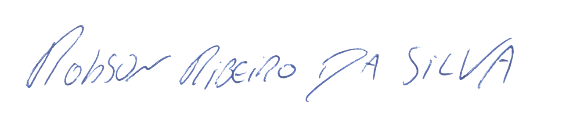 Robson Ribeiro DA SILVA